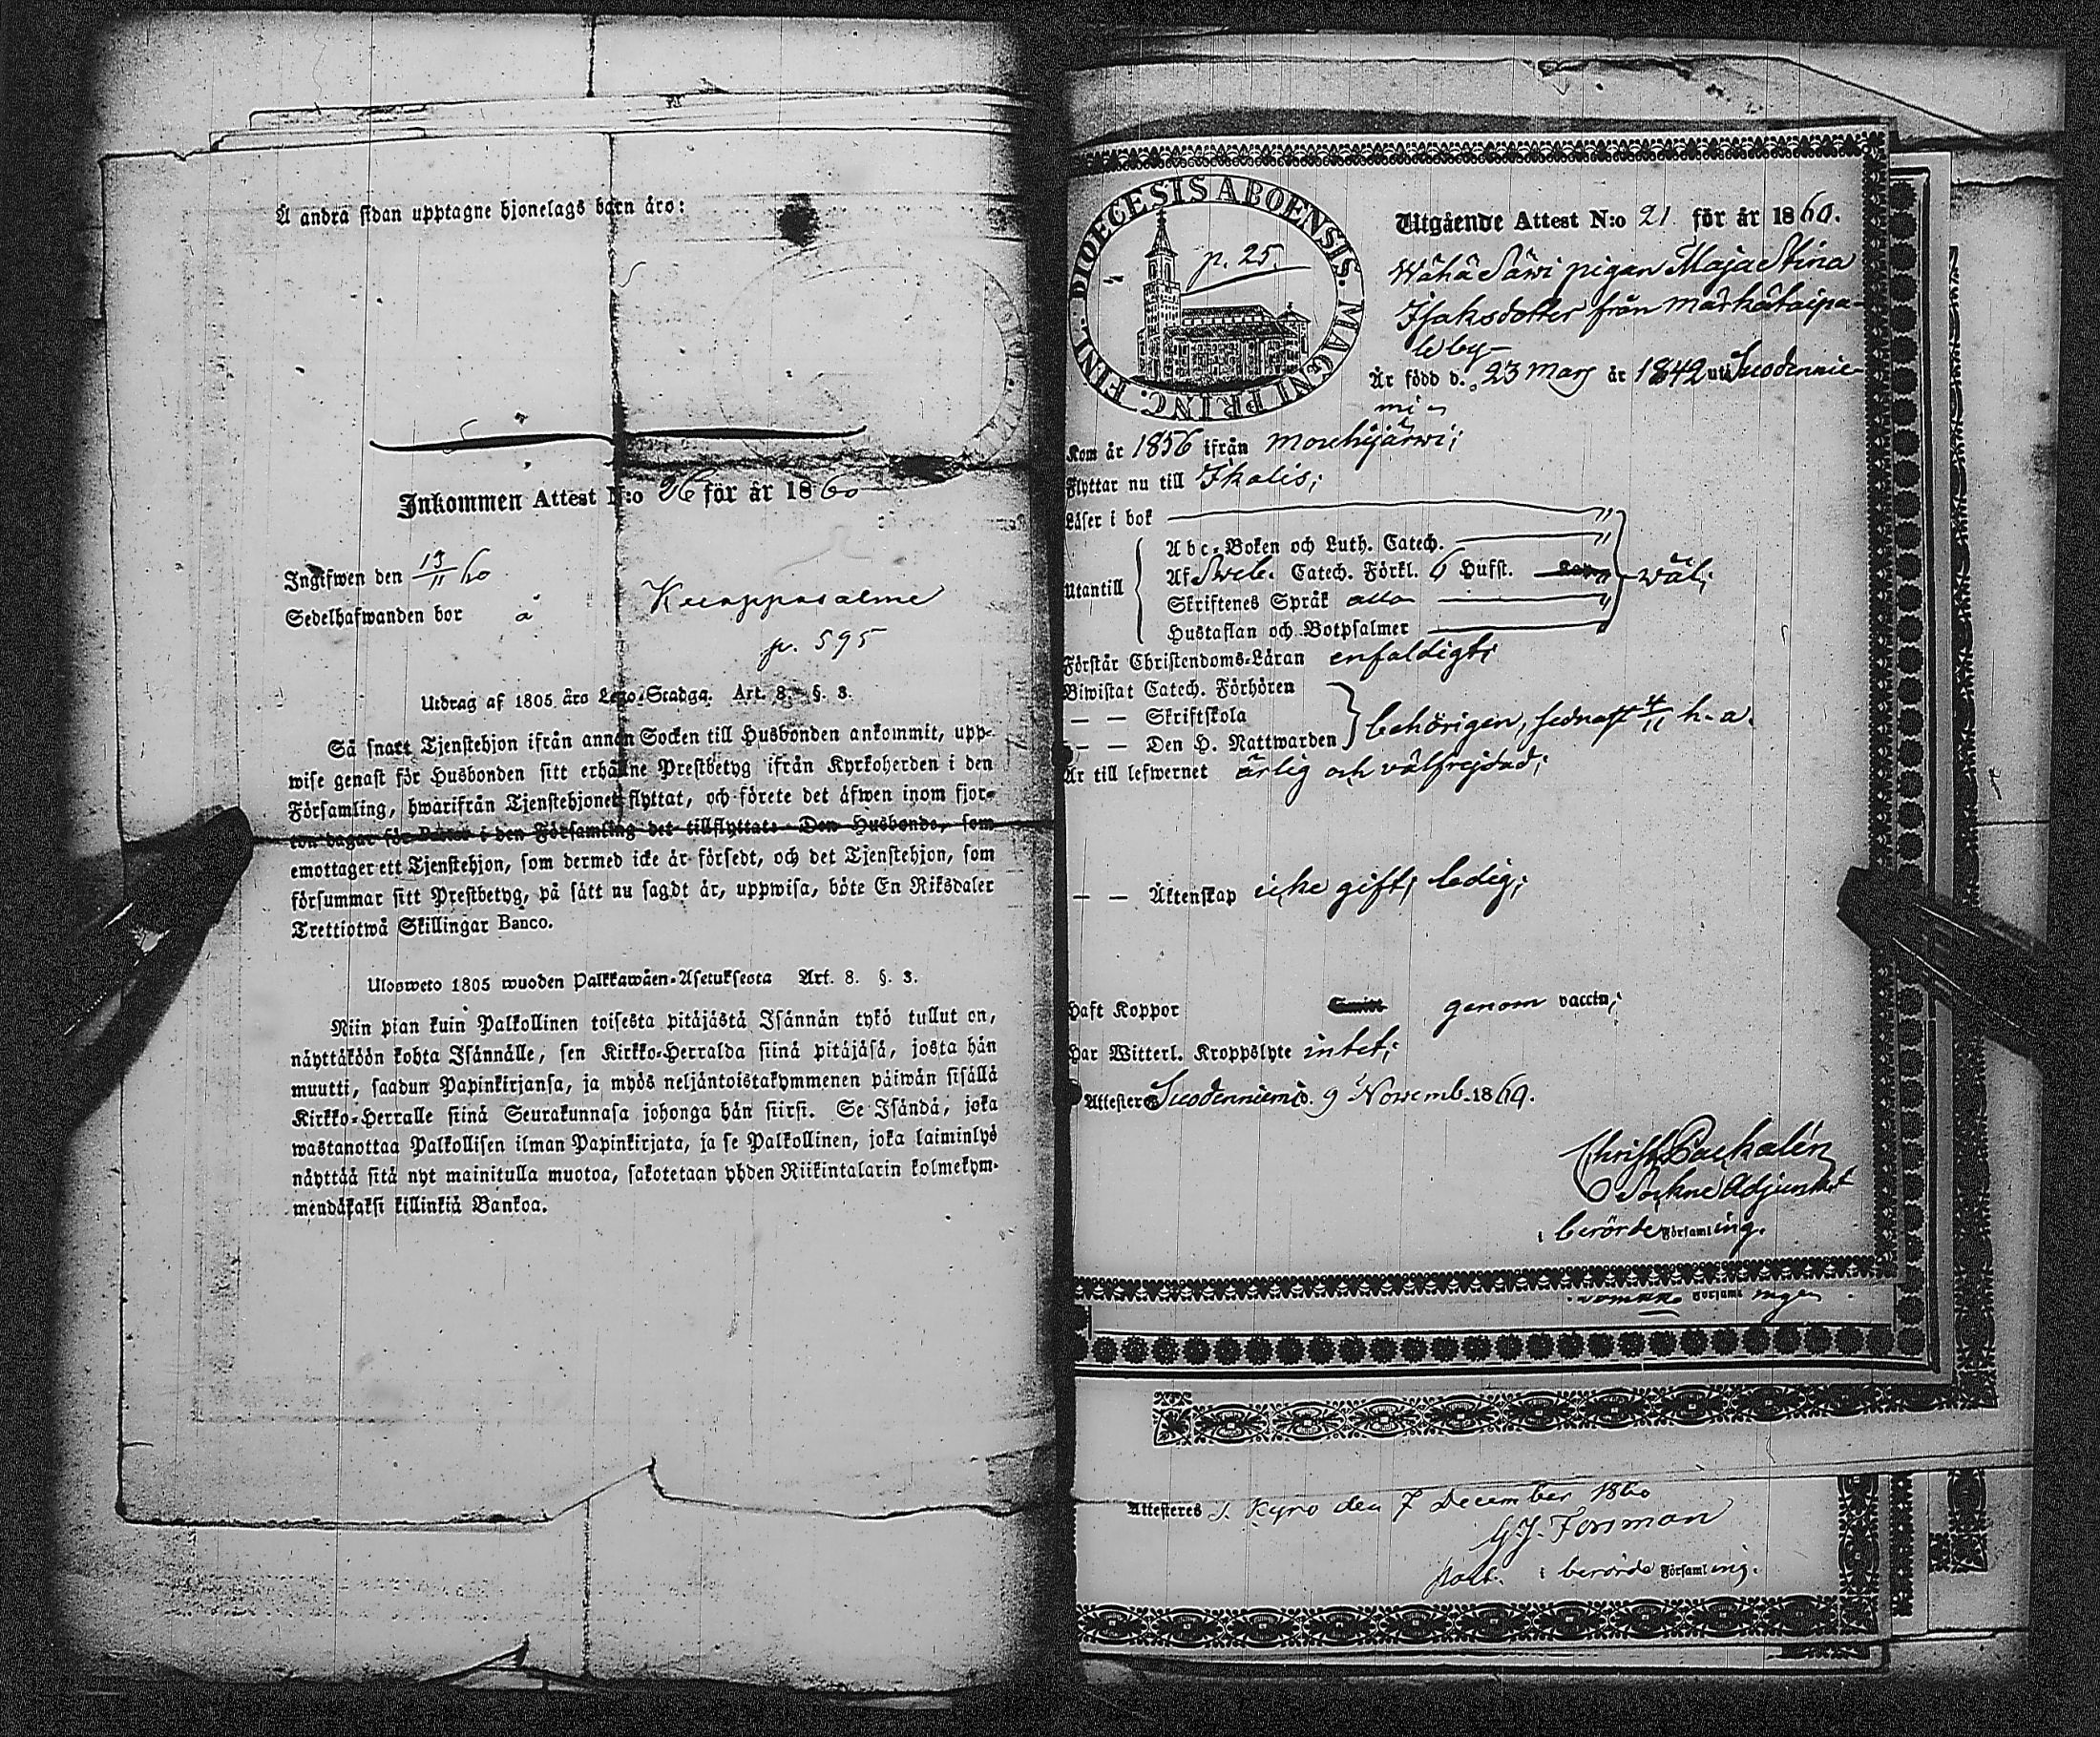 Å andra sidan upptagne hjonelags barn äro:
Inkommen Attest N:o 26 för år 1860
Ingifwen den 13/11 60
Sedelhafwanden bor å Knappasalme
p. 595
Utdrag af 1805 års Lego-Stadga. Art. 8. §. 3.
Så snart Tjenstehjon ifrån annan Socken till Husbonden ankommit, upp-
wise genast för Husbonden sitt erhållne Prestbetyg ifrån Kyrkoherden i den
Församling, hwarifrån Tjenstehjonet flyttat, och förete det äfwen inom fjor-
ton dagar för Pastor i den Församling det tillflyttat. Den Husbonde, som
emottager ett Tjenstehjon, som dermed icke är försedt, och det Tjenstehjon, som
försummar sitt Prestbetyg, på sätt nu sagdt är, uppwisa, böte En Riksdaler
Trettiotwå Skillingar Banco.
Ulosweto 1805 wuoden Palkkawäen-Asetuksesta Art. 8. §. 3.
Niin pian kuin Palkollinen toisesta pitäjästä Isännän tykö tullut on,
näyttäköön kohta Isännälle, sen Kirkko-Herralda siinä pitäjäsä, josta hän
muutti, saadun Papinkirjansa, ja myös neljäntoistakymmenen päiwän sisällä
Kirkko-Herralle siinä Seurakunnasa johonga hän siirsi. Se Isändä, joka
wastanottaa Palkollisen ilman Papinkirjata, ja se Palkollinen, joka laiminlyö
näyttää sitä nyt mainitulla muotoa, sakotetaan yhden Riikintalarin kolmekym-
mendäkaksi killinkiä Bankoa.
DIOECESIS ABOENSIS. MAGNI PRINC. FINL.
p. 25.
Utgående Attest N:o 21 för år 1860.
Wähä Säwi pigan Maja Stina
Isaksdotter från Märkätaipa-
le by
Är född d. 23 Mars år 1842 uti Suodennie-
mi
Kom år 1856 ifrån Mouhijärwi;
Flyttar nu till Ikalis;
Läser i bok "
Utantill
Abc-Boken och Luth. Catech. "
Af Sweb. Catech. Förkl. 6 Hufst. " wäl;
Skriftenes Språk alla "
Hustaflan och Botpsalmer "
Förstår Christendoms-Läran enfaldigt;
Biwistat Catech. Förhören
— — Skriftskola
— — Den H. Nattwarden behörigen, sednast 4/11 h. a.
Är till lefwernet ärlig och välfrejdad;
— — Äktenskap icke gift; ledig;
Haft Koppor genom vaccin;
Har Witterl. Kroppslyte intet;
Attesteres Suodenniemi d. 9 Novemb. 1860.
Sockne Adjunkt
i berörde Församling.
Församl ingen
Attesteres i Kyro den 7 December 1860
G J. Forsman
i berörde Församling.